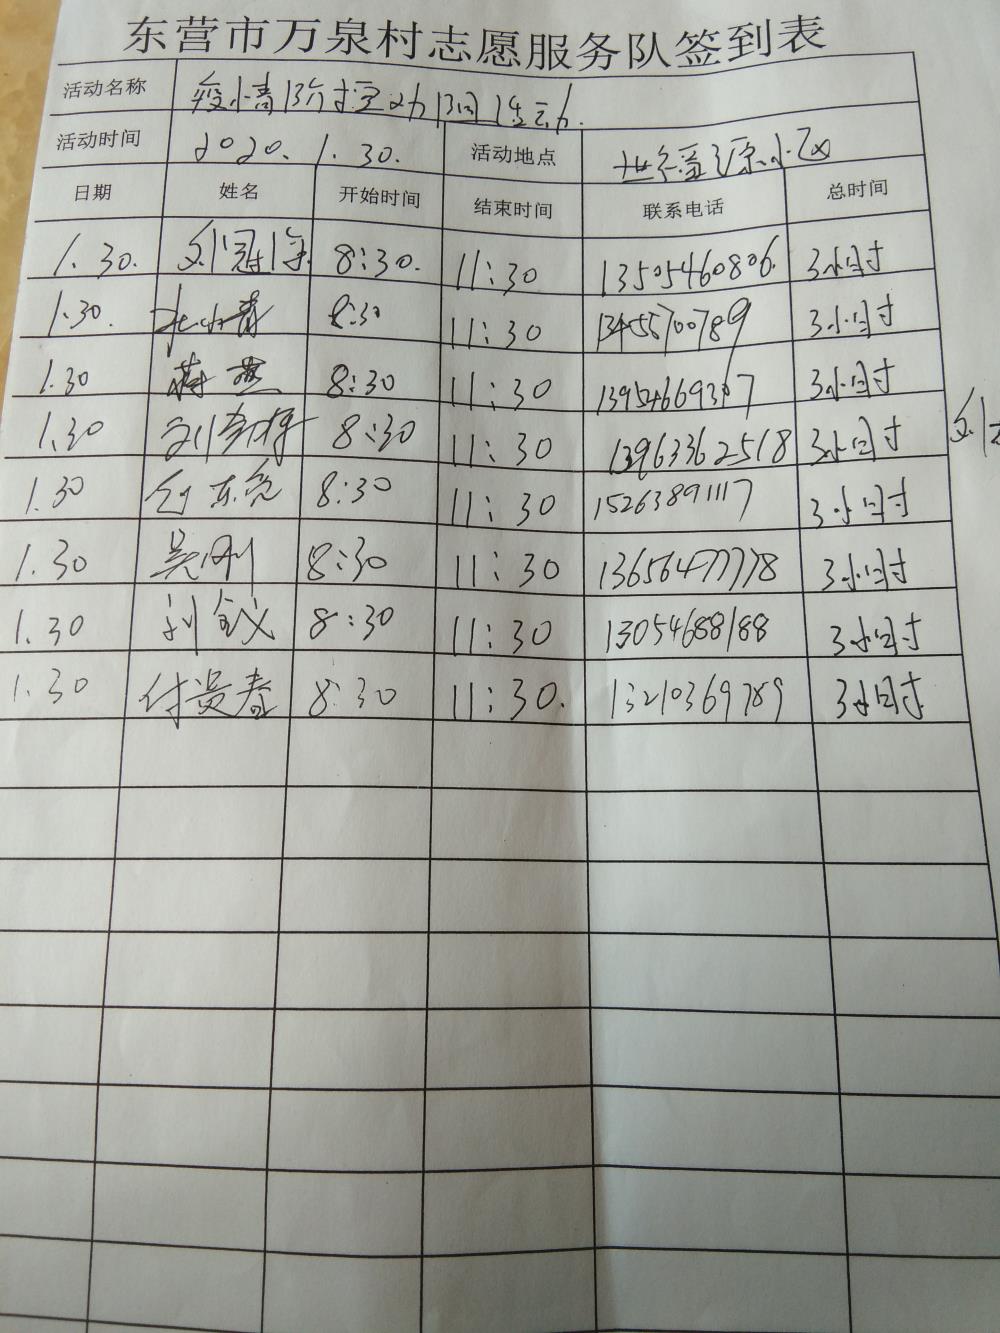 东营市万泉村志愿服务队签到表
活动名称 疫情防控
活动时间 2020.1.30. 活动地点 小区
日期 姓名 开始时间 结束时间 联系电话 总时间
1.30. 刘冠 8:30. 11:30 13505460806. 3小时
1.30. 8:30 11:30 13455700789 3小时
1.30 蒋燕 8:30 11:30 13954669367 3小时
1.30 刘 8:30 11:30 13963362518 3小时
1.30 8:30 11:30 15263891117 3小时
1.30 吴刚 8:30 11:30 13656477778 3小时
1.30 8:30 11:30 13054688188 3小时
1.30 付贵春 8:30 11:30. 13210369789 3小时.